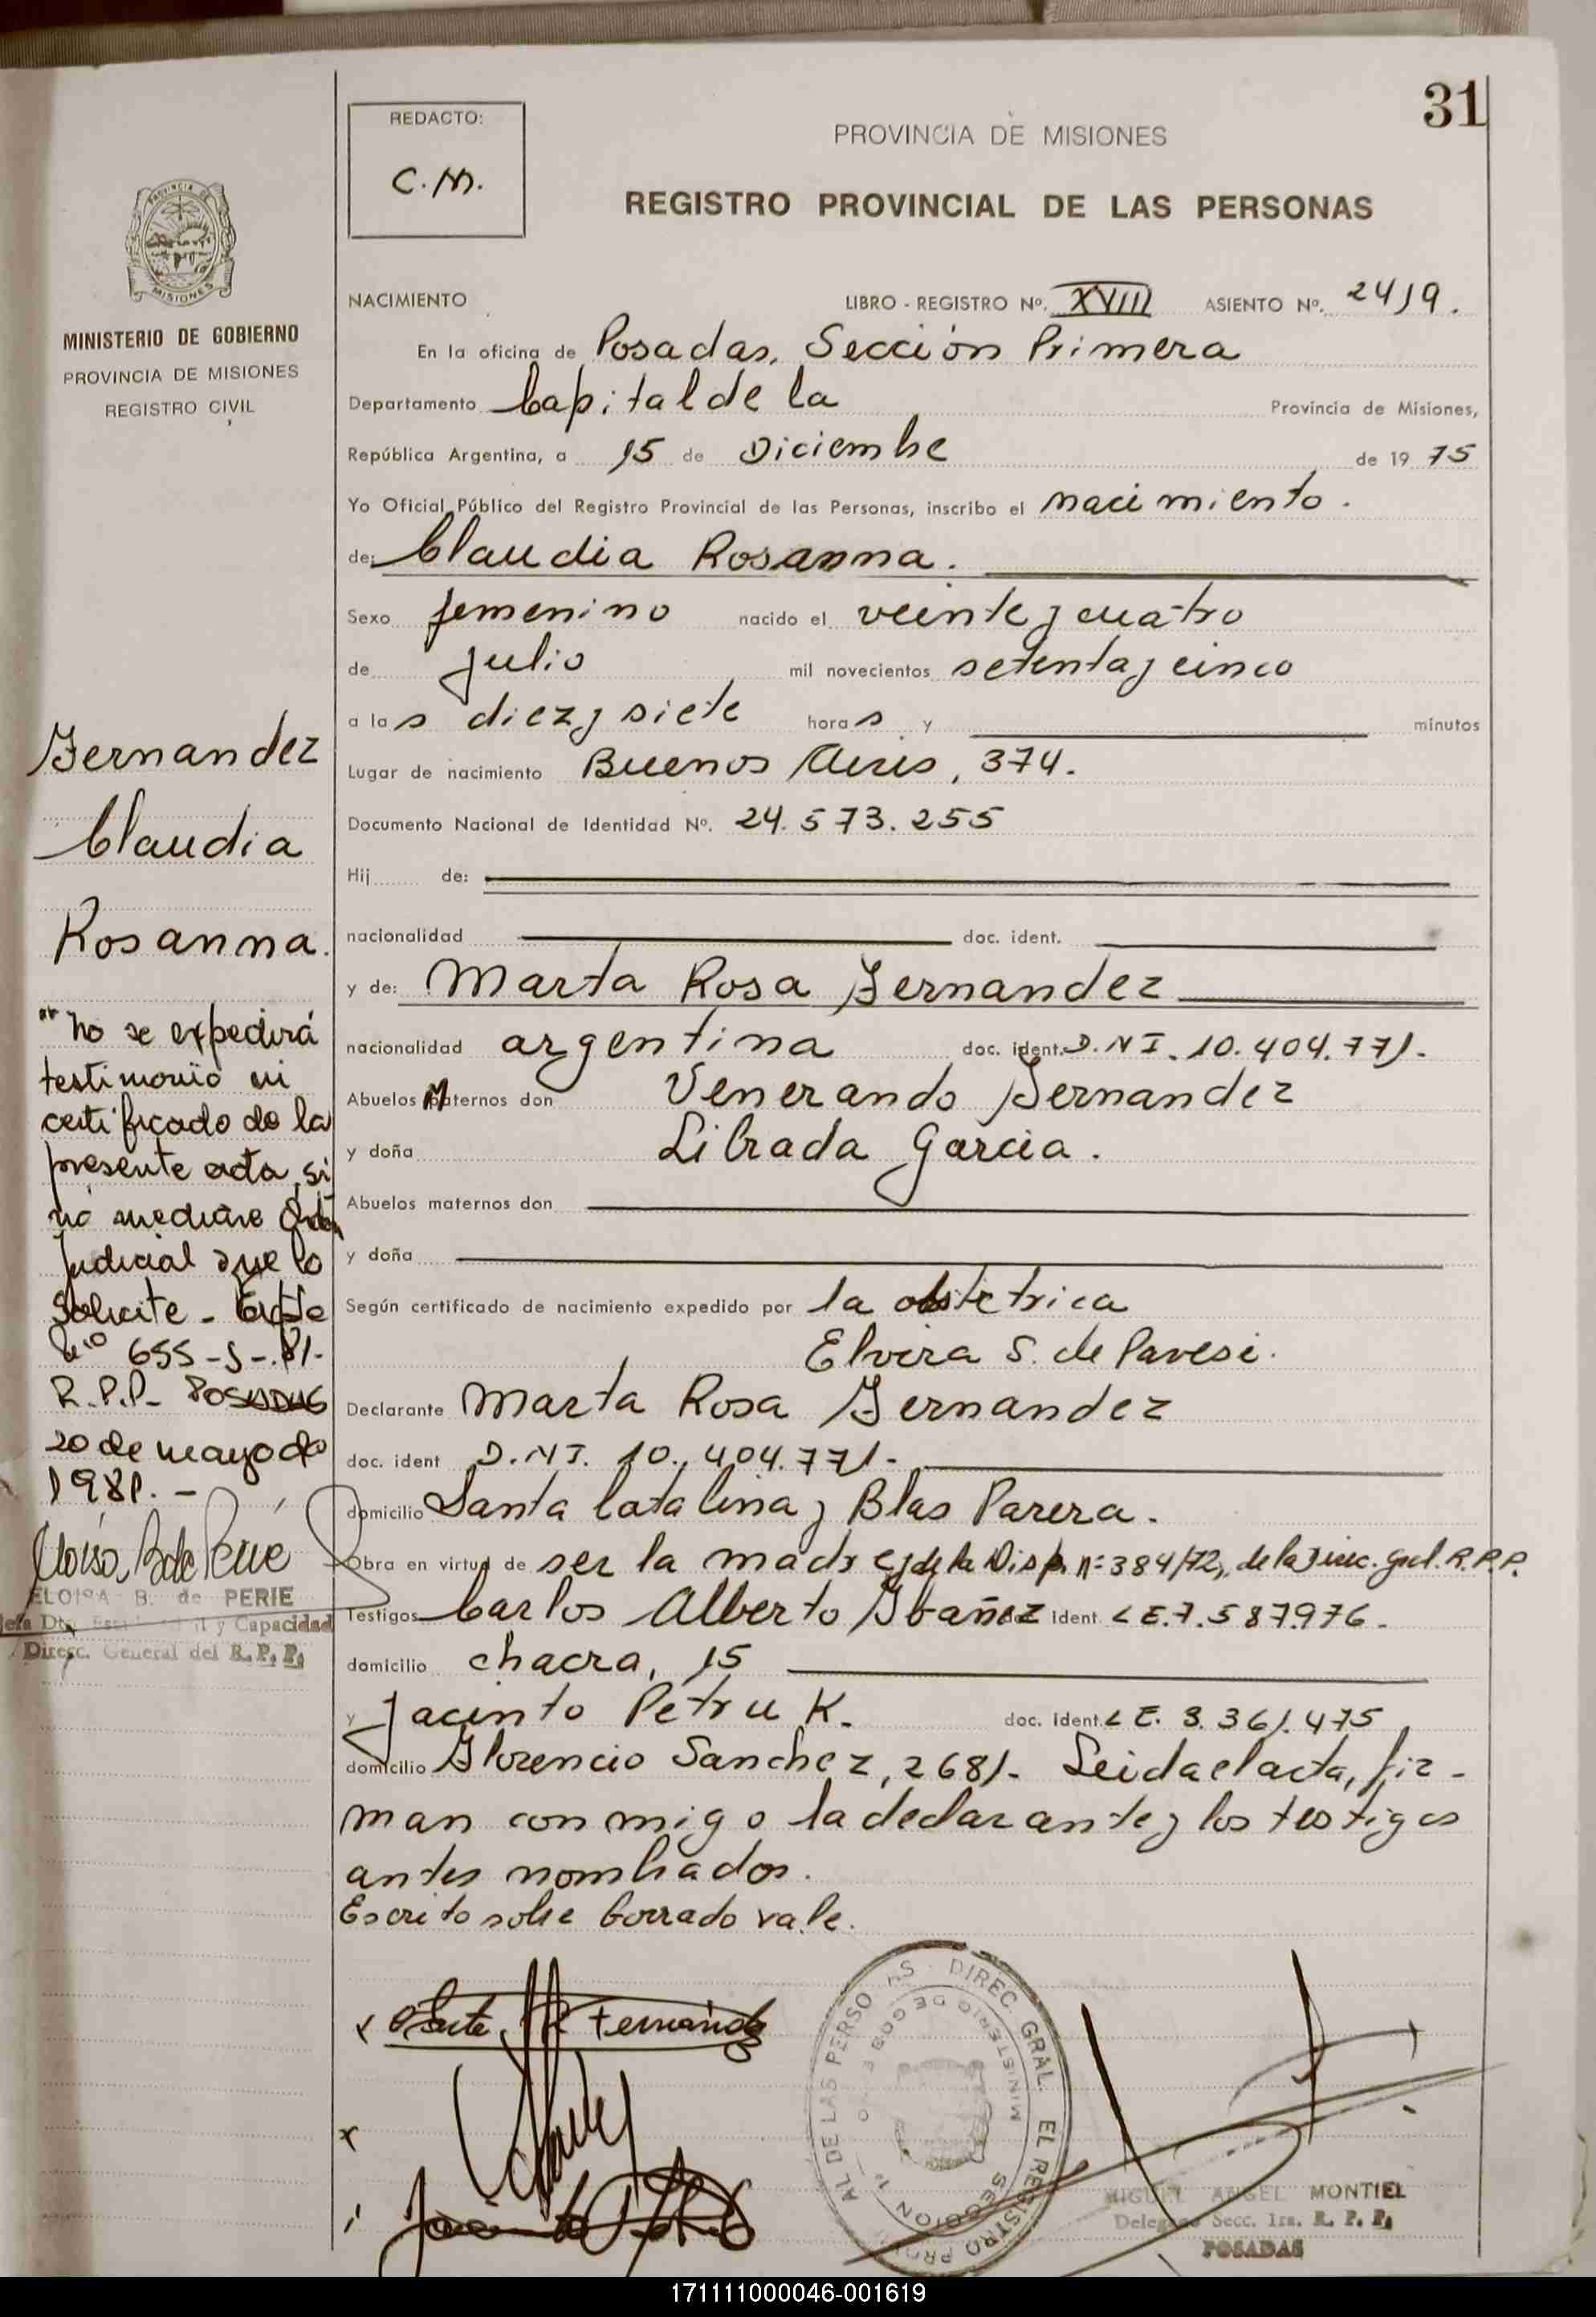 31
REDACTO:
C.M.
PROVINCIA DE MISIONES
REGISTRO PROVINCIAL DE LAS PERSONAS
PROVINCIA DE
MISIONES
MINISTERIO DE GOBIERNO
PROVINCIA DE MISIONES
REGISTRO CIVIL
NACIMIENTO LIBRO - REGISTRO Nº. XVIII ASIENTO Nº. 2419.
En la oficina de Posadas, Sección Primera
Departamento Capital de la Provincia de Misiones,
República Argentina, a 15 de Diciembre de 19 75
Yo Oficial Público del Registro Provincial de las Personas, inscribo el nacimiento.
de: Claudia Rosanna.
Sexo femenino nacido el veinte y cuatro
de julio mil novecientos setenta y cinco
a las diez y siete horas y minutos
Lugar de nacimiento Buenos Aires, 374.
Documento Nacional de Identidad Nº. 24.573.255
Hij de:
nacionalidad doc. ident.
y de: Marta Rosa Fernandez
nacionalidad argentina doc. ident. D.N I. 10.404.771.
Abuelos Maternos don Venerando Fernandez
y doña Librada Garcia.
Abuelos maternos don
y doña
Según certificado de nacimiento expedido por la obstetrica
Elvira S. de Pavesi.
Declarante Marta Rosa Fernandez
doc. ident D.N.I. 10.404.771.-
domicilio Santa Catalina y Blas Parera.
Obra en virtud de ser la madre y de la Disp. Nº 384/72, de la Direc. Gral. R.P.P.
Testigos Carlos Alberto Ibañez ident. L E.7.587.976.
domicilio chacra, 15
y Jacinto Petruk. doc. ident. L E. 3.361.475
domicilio Florencio Sanchez, 2681- Leida el acta, fir-
man conmigo la declarante y los testigos
antes nombrados.
Escrito sobre borrado vale.
Fernandez
Claudia
Rosanna.
"No se expedirá
testimonio ni
certificado de la
presente acta, si
no mediare Orden
Judicial que lo
Solicite - Expte
Nº 655-S-81-
R.P.P- POSADAS
20 de mayo de
1981.-
ELOISA B. de PERIE
Jefa Dto. y Capacidad
Direcc. General del R. P. P.
DIREC. GRAL. EL REGISTRO PROV AL DE LAS PERSO AS
MINISTERIO DE GOBIERNO
SECCION 1ª
MIGUEL ANGEL MONTIEL
Delegado Secc. 1ra. R. P. P.
POSADAS
171111000046-001619